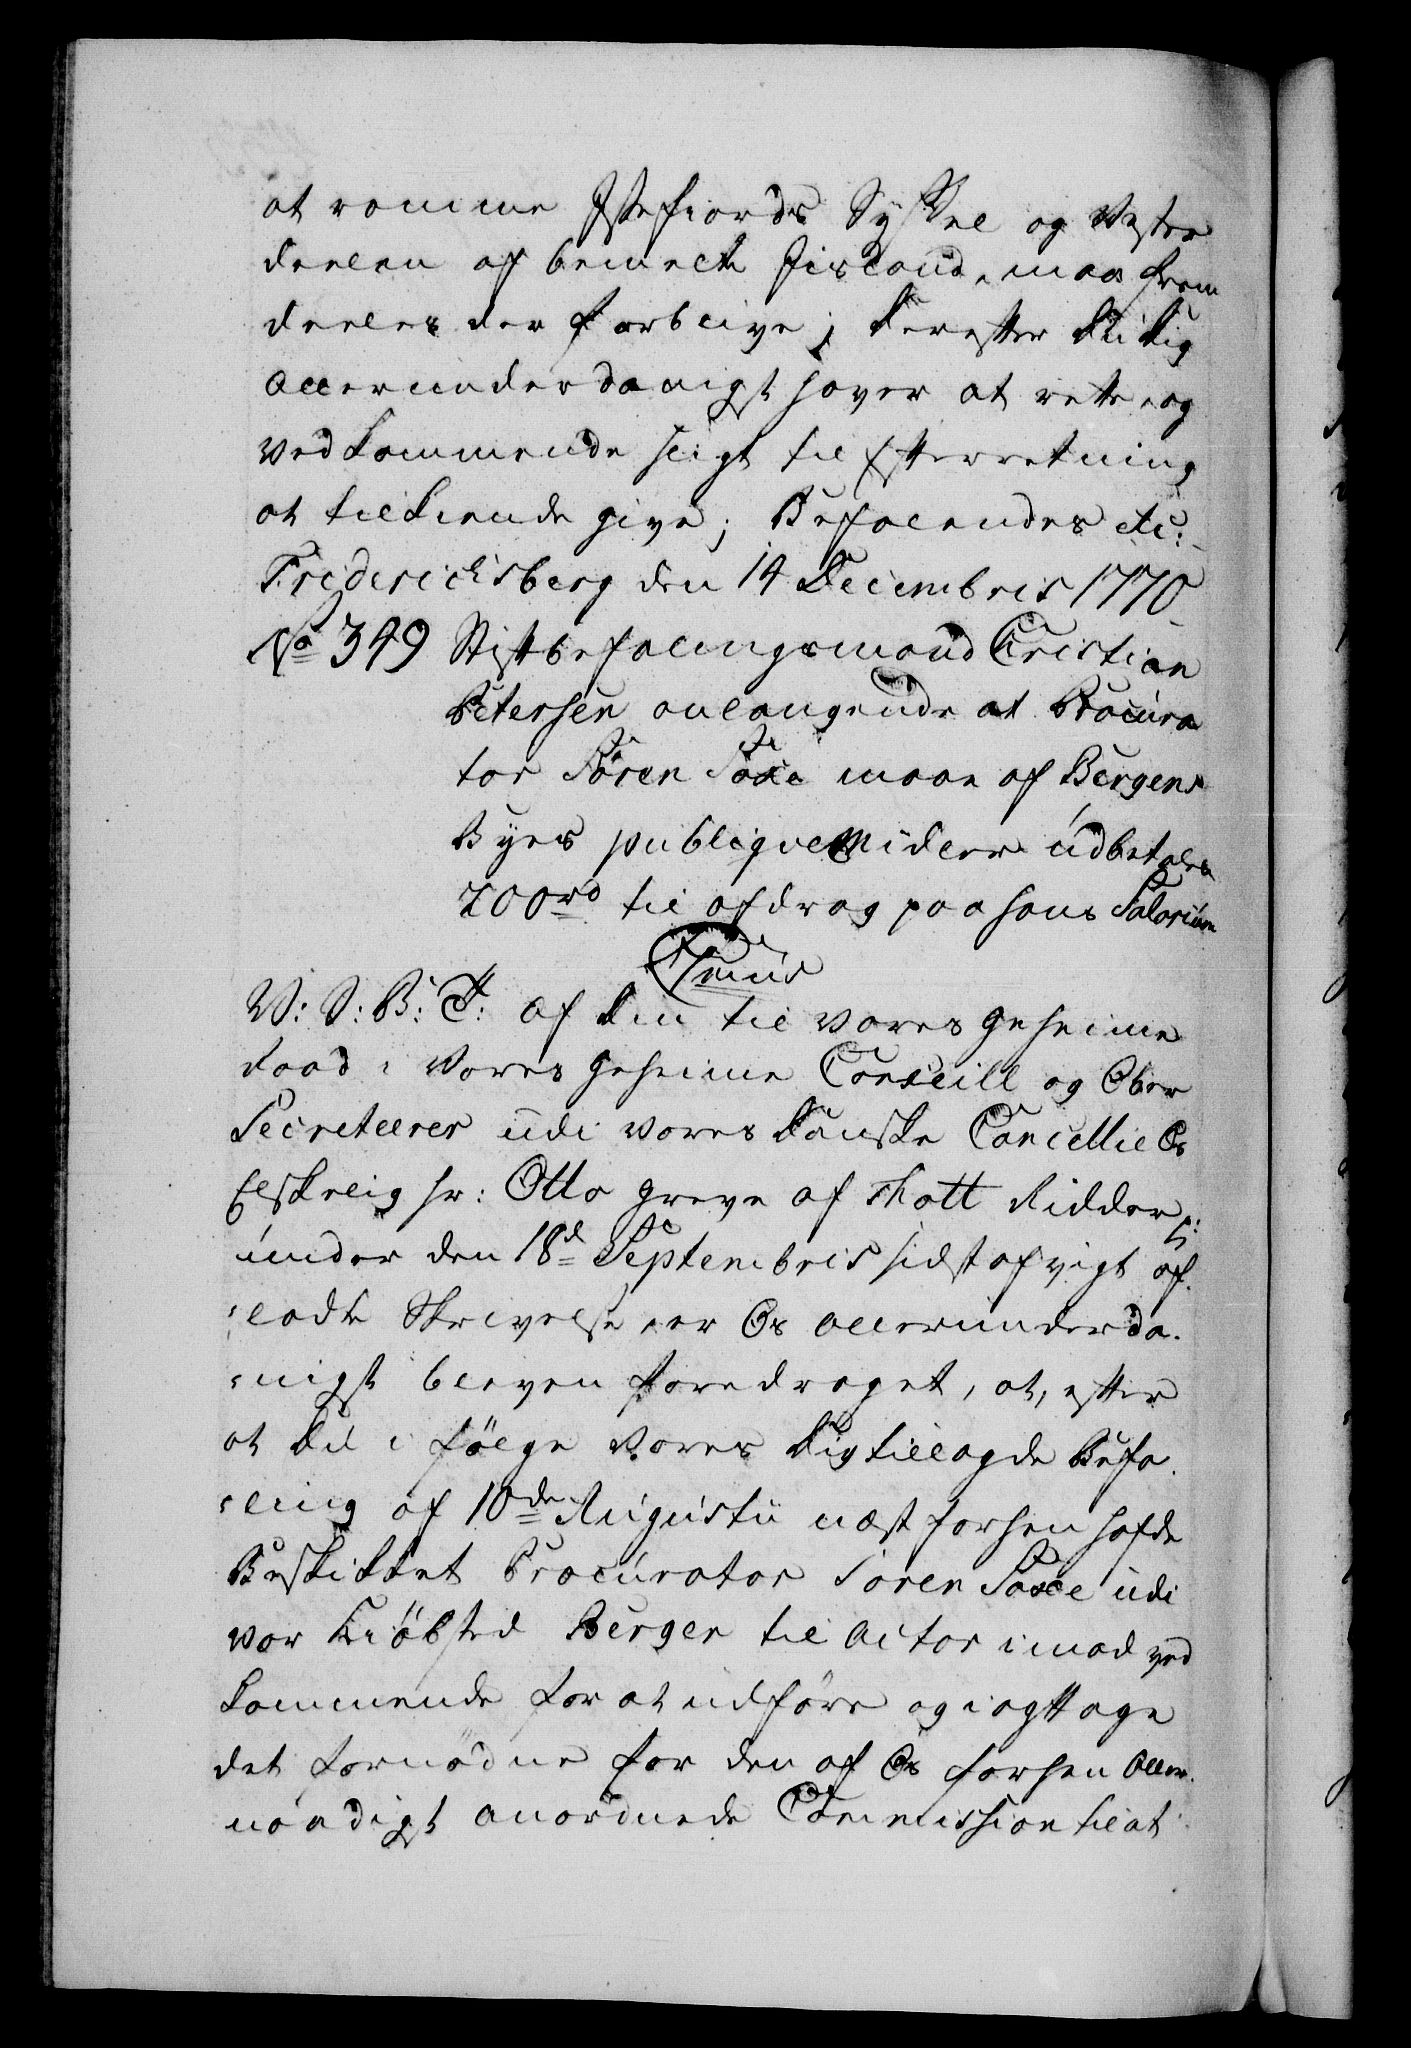 at romme Isefiords Sÿssel og Vester
deelen af bemelte Iisland, maa frem
deeles der forblive; Derefter Du Dig
allerunderdanigst haver at rette, og
vedkommende sligt til Efterretning
at tilkiende give; Befalendes etc:
Friderichsberg den 14 Decembris 1770
No 349 Stiftbefalingsmand Cristian
Petersen anlangende at Procura
tor Sören Saxe maae af Bergens
Byes publique Midler údbetales
200rd til afdrag paa hans Salarium
V: S: B: T: Af din til vores geheime
Raad i Vores geheime Conseill og Ober
Secreterer udi vores Danske Cancellie Os
Elskelig hr: Otto greve af Thott Ridder p:
únder den 18de Septembris sidstafvigt af-
-ladte Skrivelse, er Os allerunderda-
-nigst bleven foredraget, at, efter
at Du i fölge Vores Dig tillagde Befa-
-ling af 10de Augusti næst forhen hafde
Beskikket Procurator Sören Saxe udi
vor Kiöbsted Bergen til Actor imod ved
kommende for at udföre og iagttage
det fornödne for den af Os forhen Aller-
naadigst anordnede Commission til at